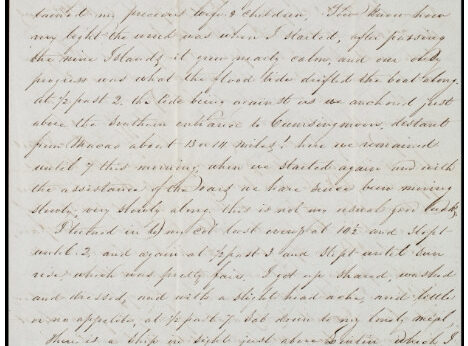 my precious wife & children, You know how
very light the wind was when I started, after passing
the nine Islands it grew nearly calm, and our only
progress was what the flood tide drifted the boat along.
at ½ past 2. the tide being against us we anchored just
above the Southern entrance to Cumsingmoon, distant
from Macao about 13 or 14 miles; here we remained
until 7 this morning when we started again and with
the assistance of the oars we have since been moving
slowly, very slowly along, this is not my usual good luck,
I turned in to my cot last eveng at 10½ and slept
until 2, and again at ½ past 3 and slept until sun
rise, which was pretty fair, I got up shaved, washed
and dressed, and with a slight head ache, and little
or no appetite, at ½ past 7 sat down to my lonely meal,
There is a Ship in sight just above which I